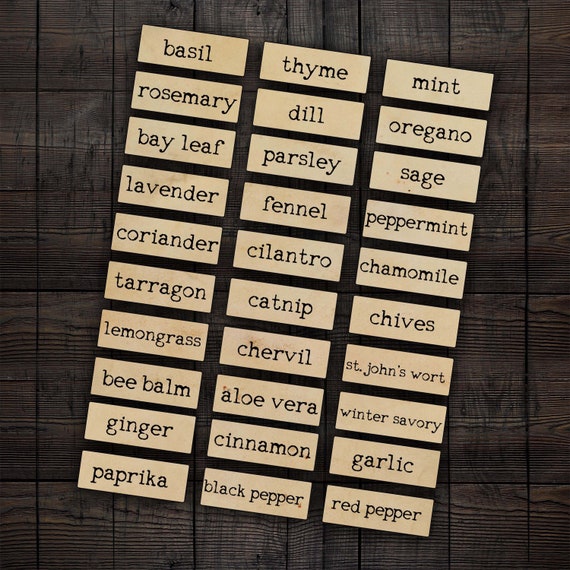 basil
thyme
mint
rosemary
dill
oregano
bay leaf
parsley
sage
lavender
fennel
peppermint
coriander
cilantro
chamomile
tarragon
catnip
chives
lemongrass
chervil
st. john's wort
bee balm
aloe vera
winter savory
ginger
cinnamon
garlic
paprika
black pepper
red pepper